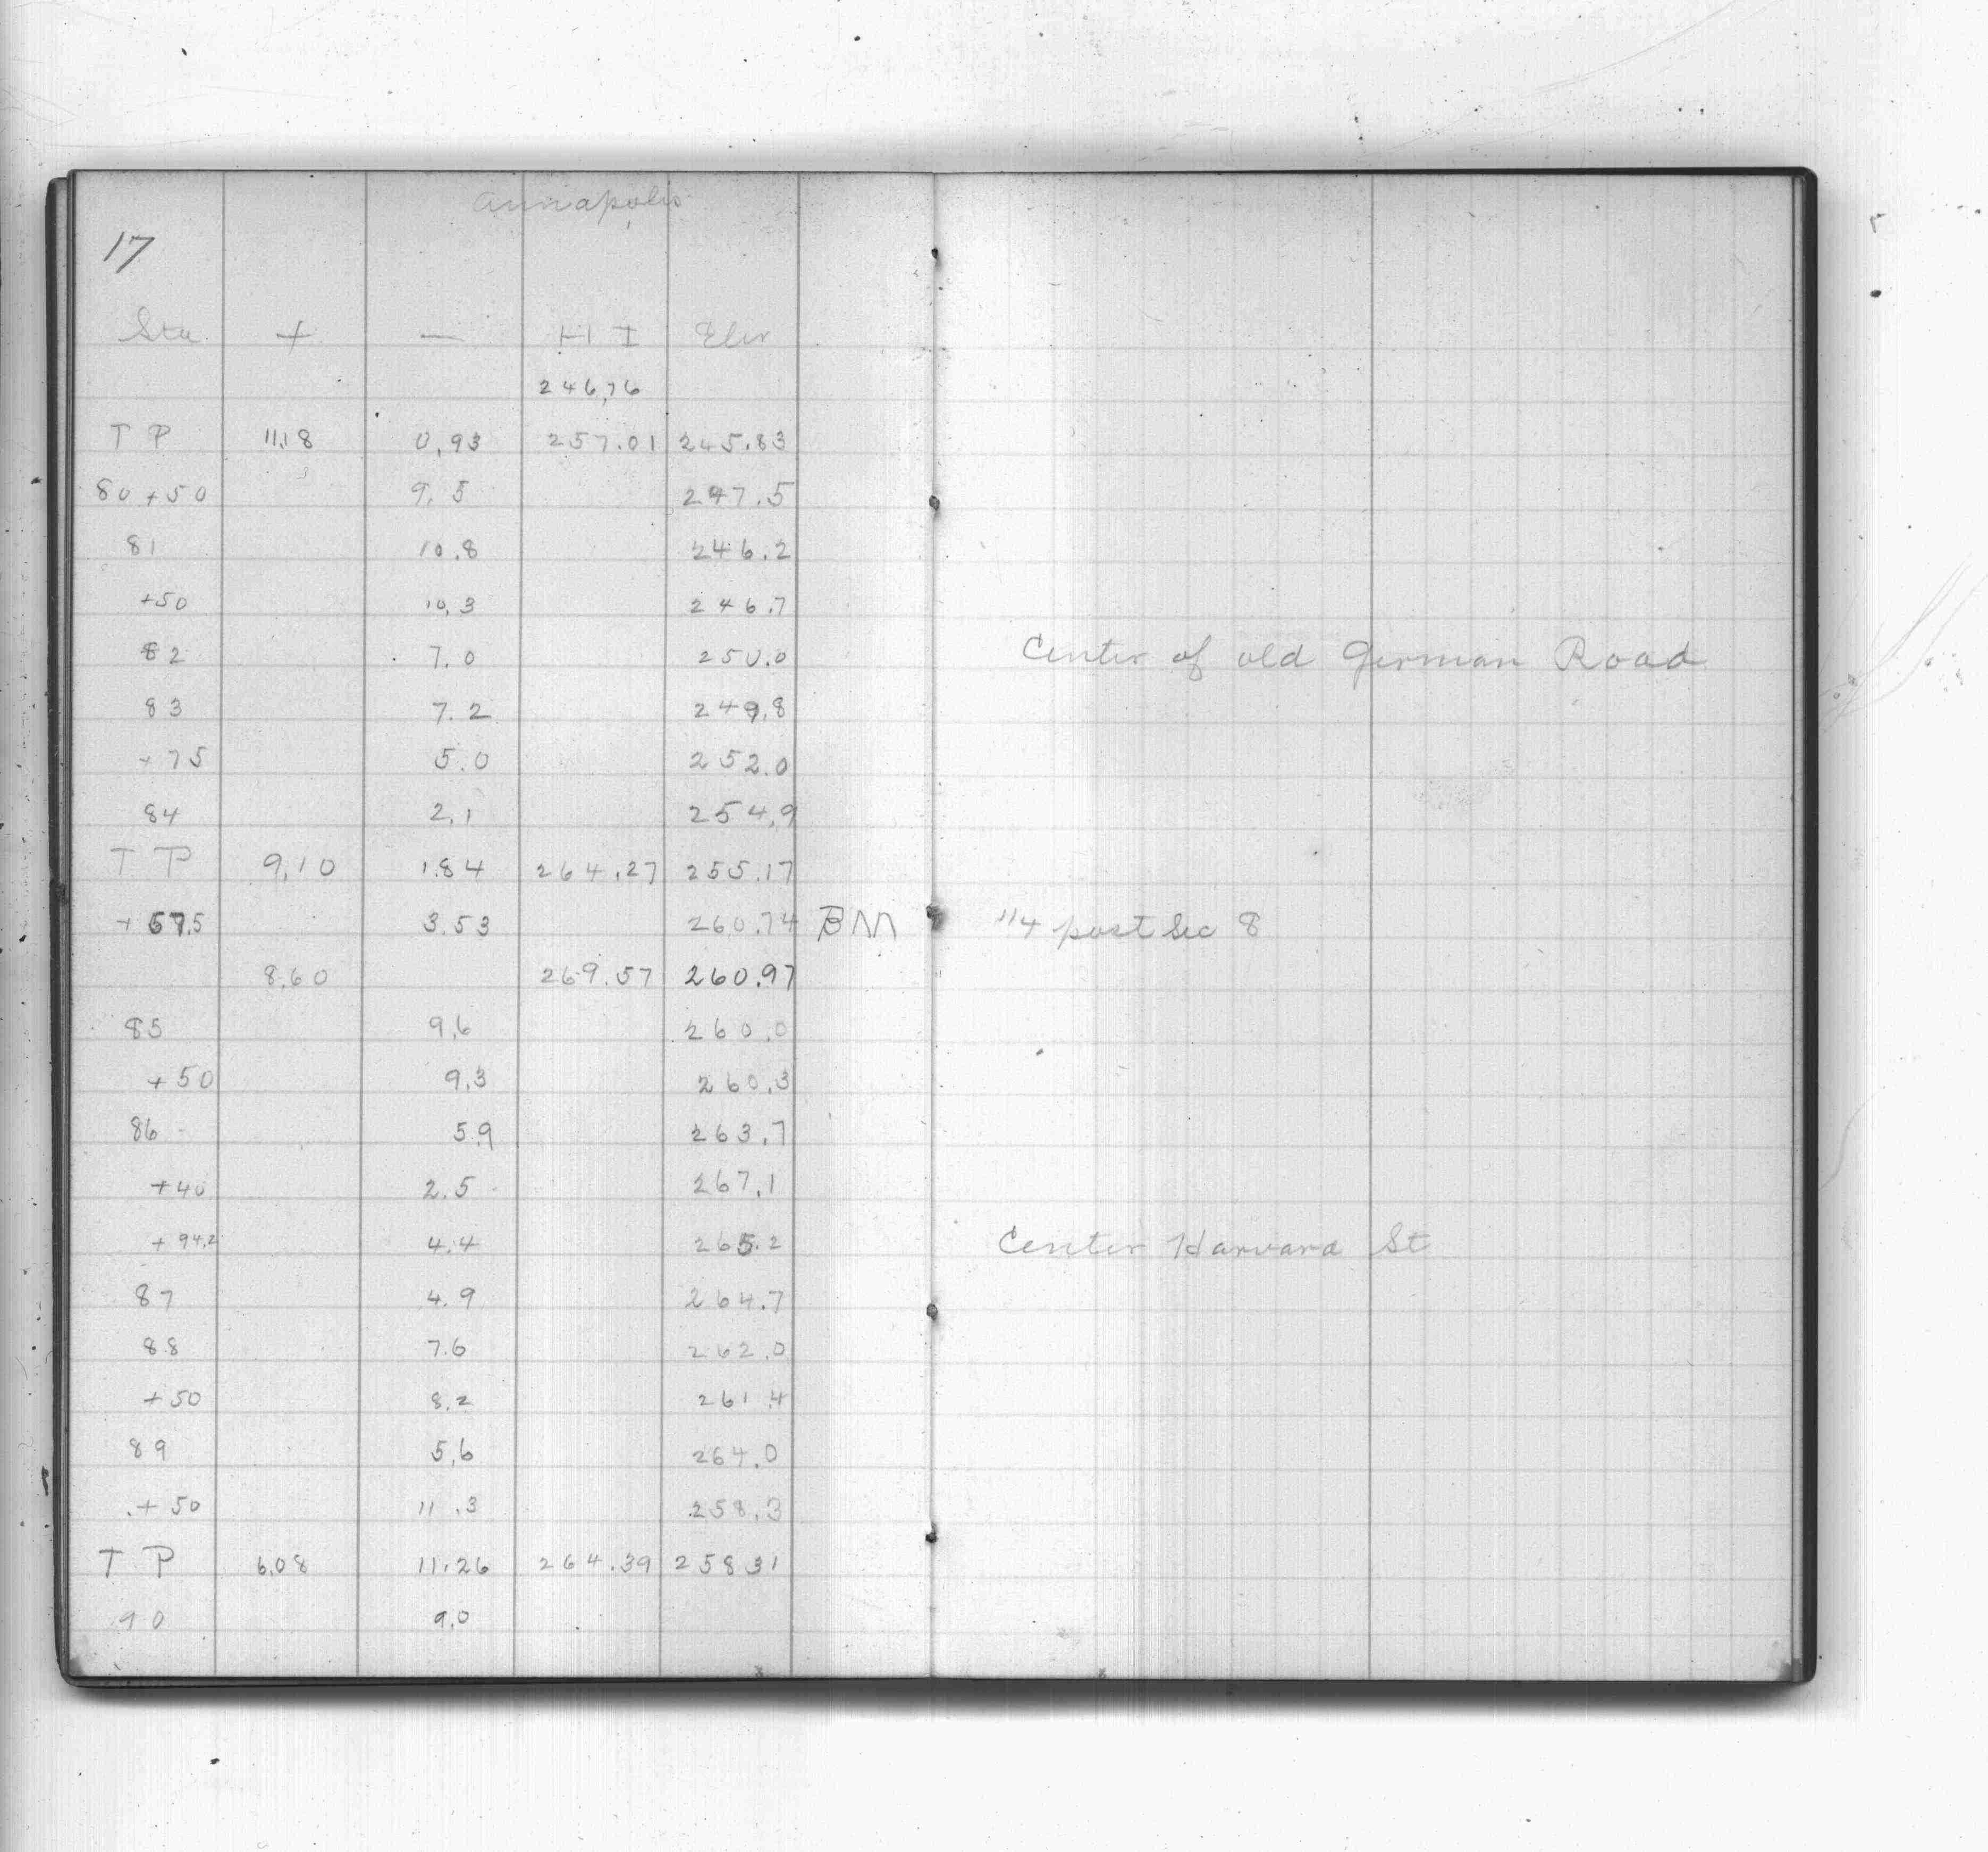 Annapolis
17
Sta + — H I Elev
246.76
T P 11.18 0.93 257.01 245.83
80 +50 9.5 247.5
81 10.8 246.2
+50 10.3 246.7
82 7.0 250.0 Center of old German Road
83 7.2 249.8
+75 5.0 252.0
84 2.1 254.9
T P 9.10 1.84 264.27 255.17
+ 57.5 3.53 260.74 BM 1/4 post Sec 8
8.60 269.57 260.97
85 9.6 260.0
+50 9.3 260.3
86 5.9 263.7
+40 2.5 267.1
+ 94.2 4.4 265.2 Center Harvard St
87 4.9 264.7
88 7.6 262.0
+50 8.2 261.4
89 5.6 264.0
+50 11.3 258.3
T P 6.08 11.26 264.39 258 31
90 9.0